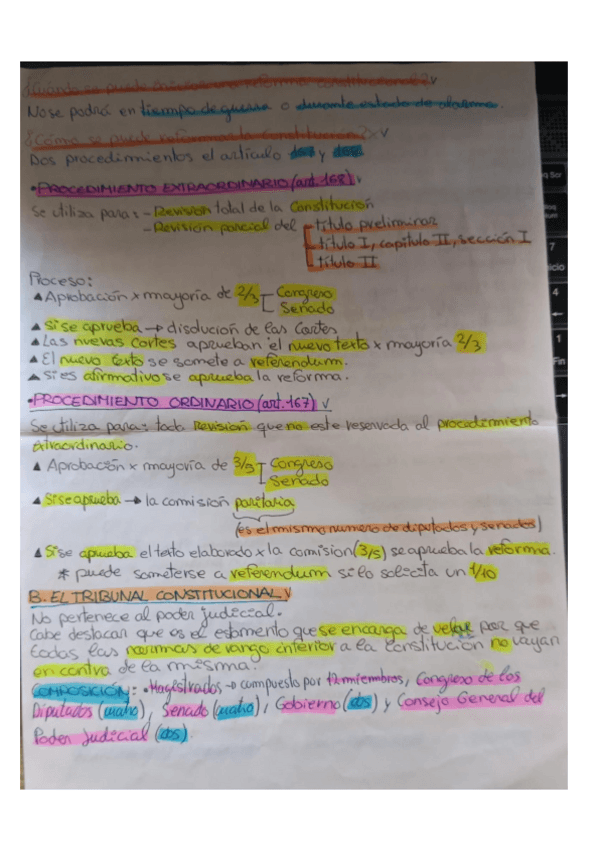 ¿Cuándo se puede iniciar una reforma constitucional? v
No se podrá en tiempo de guerra o durante estado de alarma.
¿Cómo se puede reformar la Constitución? v
Dos procedimientos el artículo 167 y 168.
•PROCEDIMIENTO EXTRAORDINARIO (art.168) v
Se utiliza para: - Revision total de la Constitución
- Revisión parcial del título preliminar
título I, capítulo II, sección I
título II
Proceso:
▲ Aprobación x mayoría de 2/3 Congreso
Senado
▲ Si se aprueba → disolución de las Cortes
▲ Las nuevas Cortes aprueban el nuevo texto x mayoría 2/3
▲ El nuevo texto se somete a referendum.
▲ Si es afirmativo se aprueba la reforma.
•PROCEDIMIENTO ORDINARIO (art.167) v
Se utiliza para: toda Revisión que no este reservada al procedimiento
extraordinario.
▲ Aprobación x mayoría de 3/5 Congreso
Senado
▲ Si se aprueba → la comisión paritaria
(es el mismo numero de diputados y senadores)
▲ Si se aprueba el texto elaborado x la comision (3/5) se aprueba la reforma.
* puede someterse a referendum si lo solicita un 1/10
B. EL TRIBUNAL CONSTITUCIONAL v
No pertenece al poder judicial.
Cabe destacar que es el estamento que se encarga de velar por que
todas las normas de rango inferior a la constitución no vayan
en contra de la misma.
COMPOSICIÓN: •Magistrados → compuesto por 12 miembros, Congreso de los
Diputados (cuatro), Senado (cuatro), Gobierno (dos) y Consejo General del
Poder Judicial (dos).